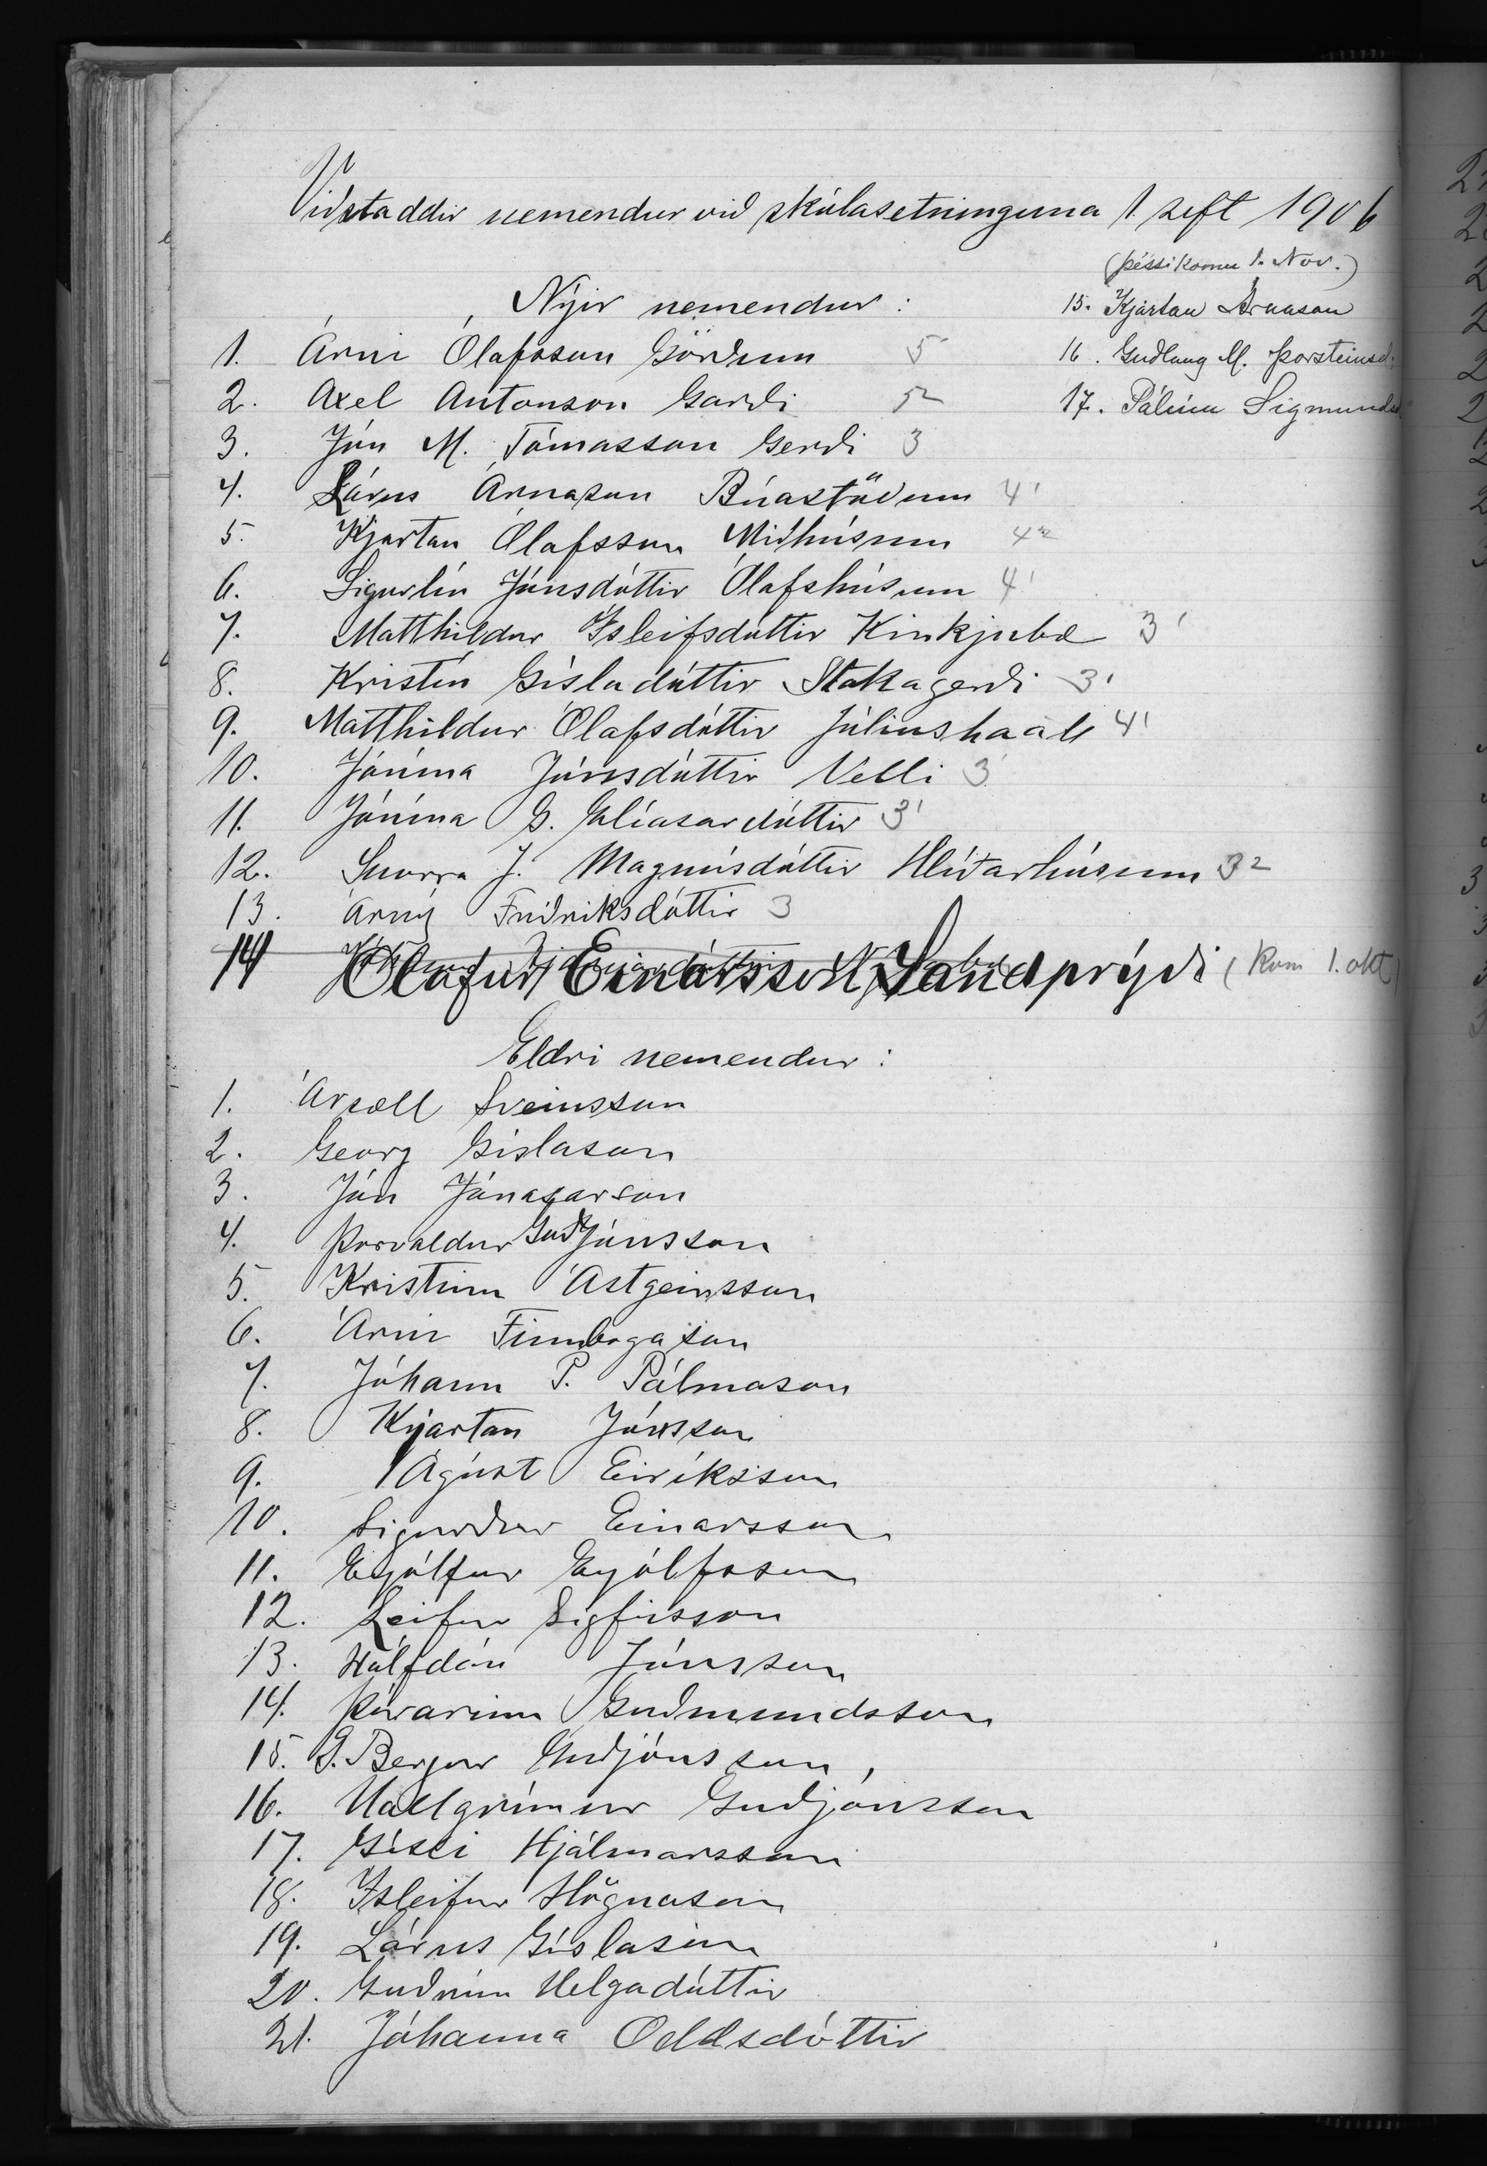 Viðstaddir nemendur við skólasetninguna 1. sept 1906
Nýir nemendur :
1. Árni Ólafsson Görðum 5
2. Axel Antonson Garði 5
3. Jón M. Tómasson Gerði 3
4. Lárus Árnason Búastöðum 4'
5. Kjartan Ólafsson Miðhúsum 4
6. Sigurlín Jónsdóttir Ólafshúsum 4'
7. Matthildur Ísleifsdóttir Kirkjubæ 3'
8. Kristín Gísladóttir Stakagerði 3'
9. Matthildur Ólafsdóttir Júlíushaab 4'
10. Jónína Jónsdóttir Velli 3
11. Jónína G. Elíasardóttir 3'
12. Snorra J. Magnúsdóttir Hlíðarhúsum 3²
13. Árný Friðriksdóttir 3
14 Ólafur Einarsson, Sandprýði (kom 1. okt)
(þessi komu 1. Nov.)
15. Kjartan Árnason
16. Guðlaug M. Þorsteinsd.
17. Pálína Sigmundsd
Eldri nemendur :
1. Ársæll Sveinsson
2. Georg Gíslason
3. Jón Jónasarson
4. Þorvaldur Guðjónsson
5. Kristinn Ástgeirsson
6. Árni Finnbogason
7. Jóhann P. Pálmason
8. Kjartan Jónsson
9. Ágúst Eiríksson
10. Sigurður Einarsson
11. Eyjólfur Eyjólfsson
12. Leifur Sigfússon
13. Hálfdán Jónsson
14. Þórarinn Guðmundsson
15. G. Bergur Guðjónsson,
16. Hallgrímur Guðjónsson
17. Gísli Hjálmarsson
18. Ísleifur Högnason
19. Lárus Gíslason
20. Guðrún Helgadóttir
21. Jóhanna Oddsdóttir